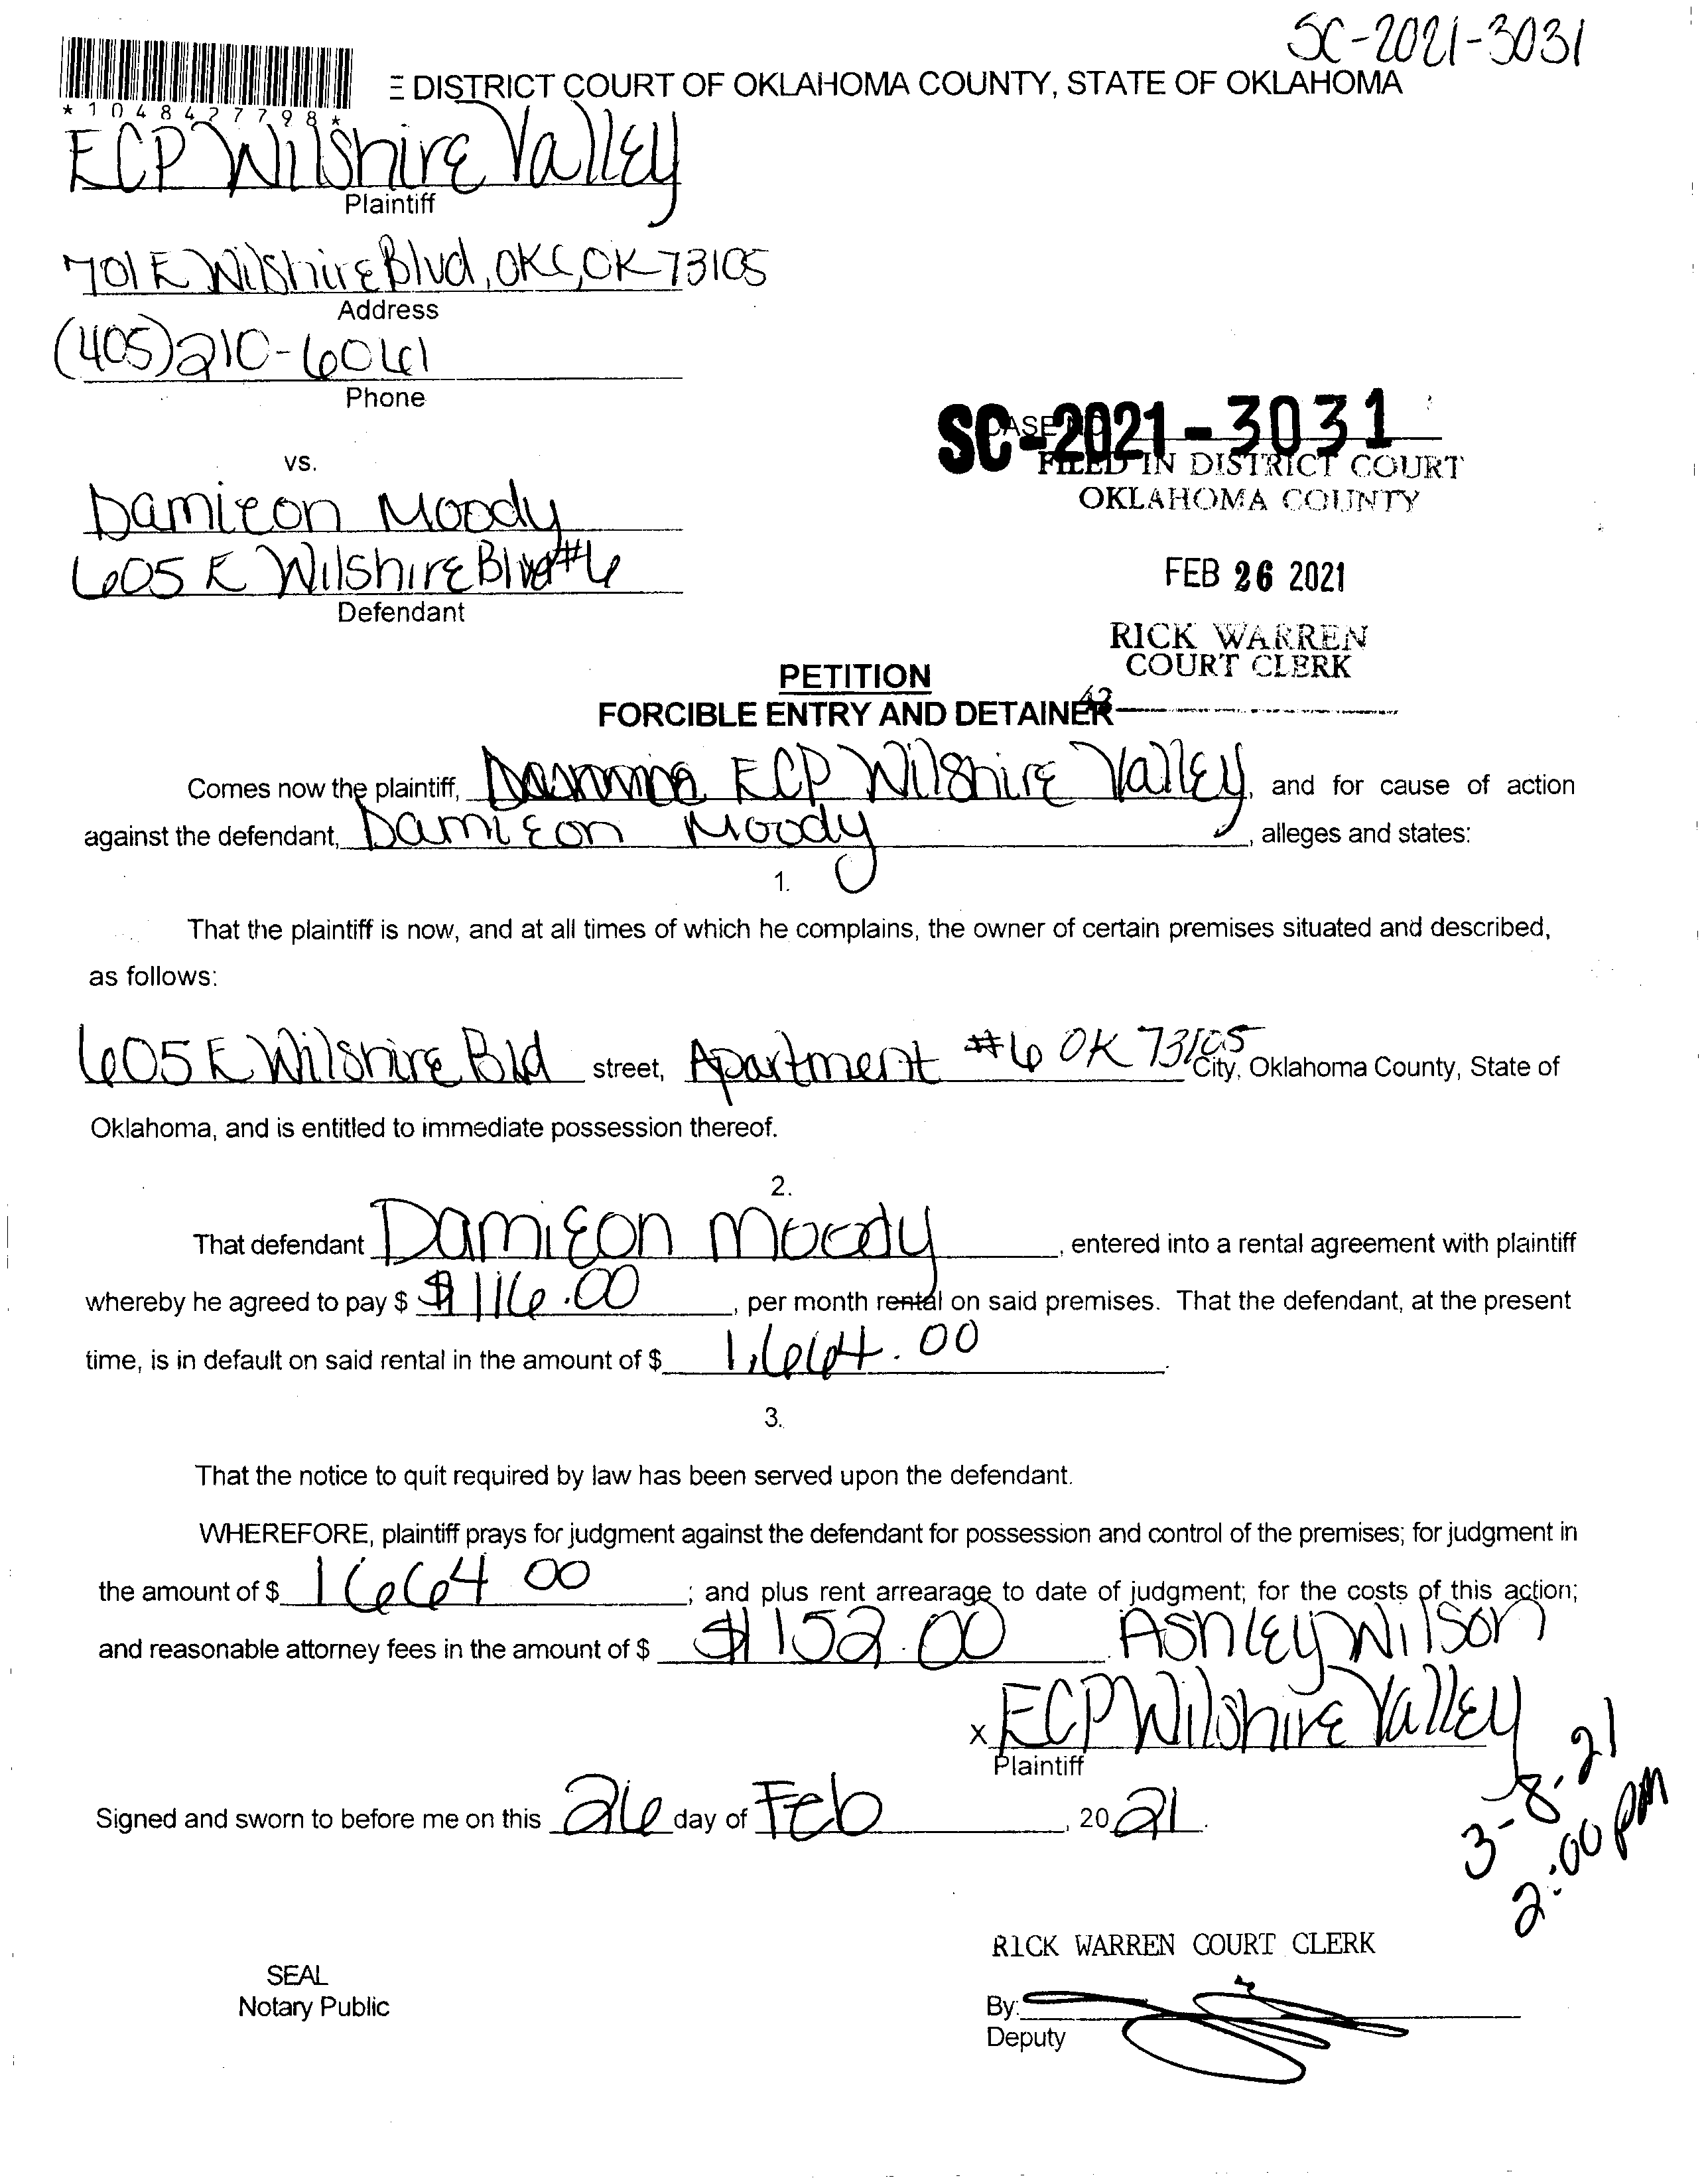 SC-2021-3031
E DISTRICT COURT OF OKLAHOMA COUNTY, STATE OF OKLAHOMA
*1048427798*
ECP Wilshire Valley
Plaintiff
701 E Wilshire Blvd, OKC, OK 73105
Address
(405)210-6061
Phone
SC-2021-3031
FILED IN DISTRICT COURT
OKLAHOMA COUNTY
vs.
Damieon Moody
605 E Wilshire Blvd #6
Defendant
FEB 26 2021
RICK WARREN
COURT CLERK
PETITION
FORCIBLE ENTRY AND DETAINER
Comes now the plaintiff, ECP Wilshire Valley, and for cause of action
against the defendant, Damieon Moody, alleges and states:
1.
That the plaintiff is now, and at all times of which he complains, the owner of certain premises situated and described,
as follows:
605 E Wilshire Bld street, Apartment #6 OK 73105 City, Oklahoma County, State of
Oklahoma, and is entitled to immediate possession thereof.
2.
That defendant Damieon Moody, entered into a rental agreement with plaintiff
whereby he agreed to pay $ $116.00, per month rental on said premises. That the defendant, at the present
time, is in default on said rental in the amount of $ 1,664.00.
3.
That the notice to quit required by law has been served upon the defendant.
WHEREFORE, plaintiff prays for judgment against the defendant for possession and control of the premises; for judgment in
the amount of $ 1664 00; and plus rent arrearage to date of judgment; for the costs of this action;
and reasonable attorney fees in the amount of $ $152.00. Ashley Wilson
x ECP Wilshire Valley
Plaintiff
3-8-21
2:00 PM
Signed and sworn to before me on this 26 day of Feb, 20 21.
RICK WARREN COURT CLERK
SEAL
Notary Public
By:
Deputy